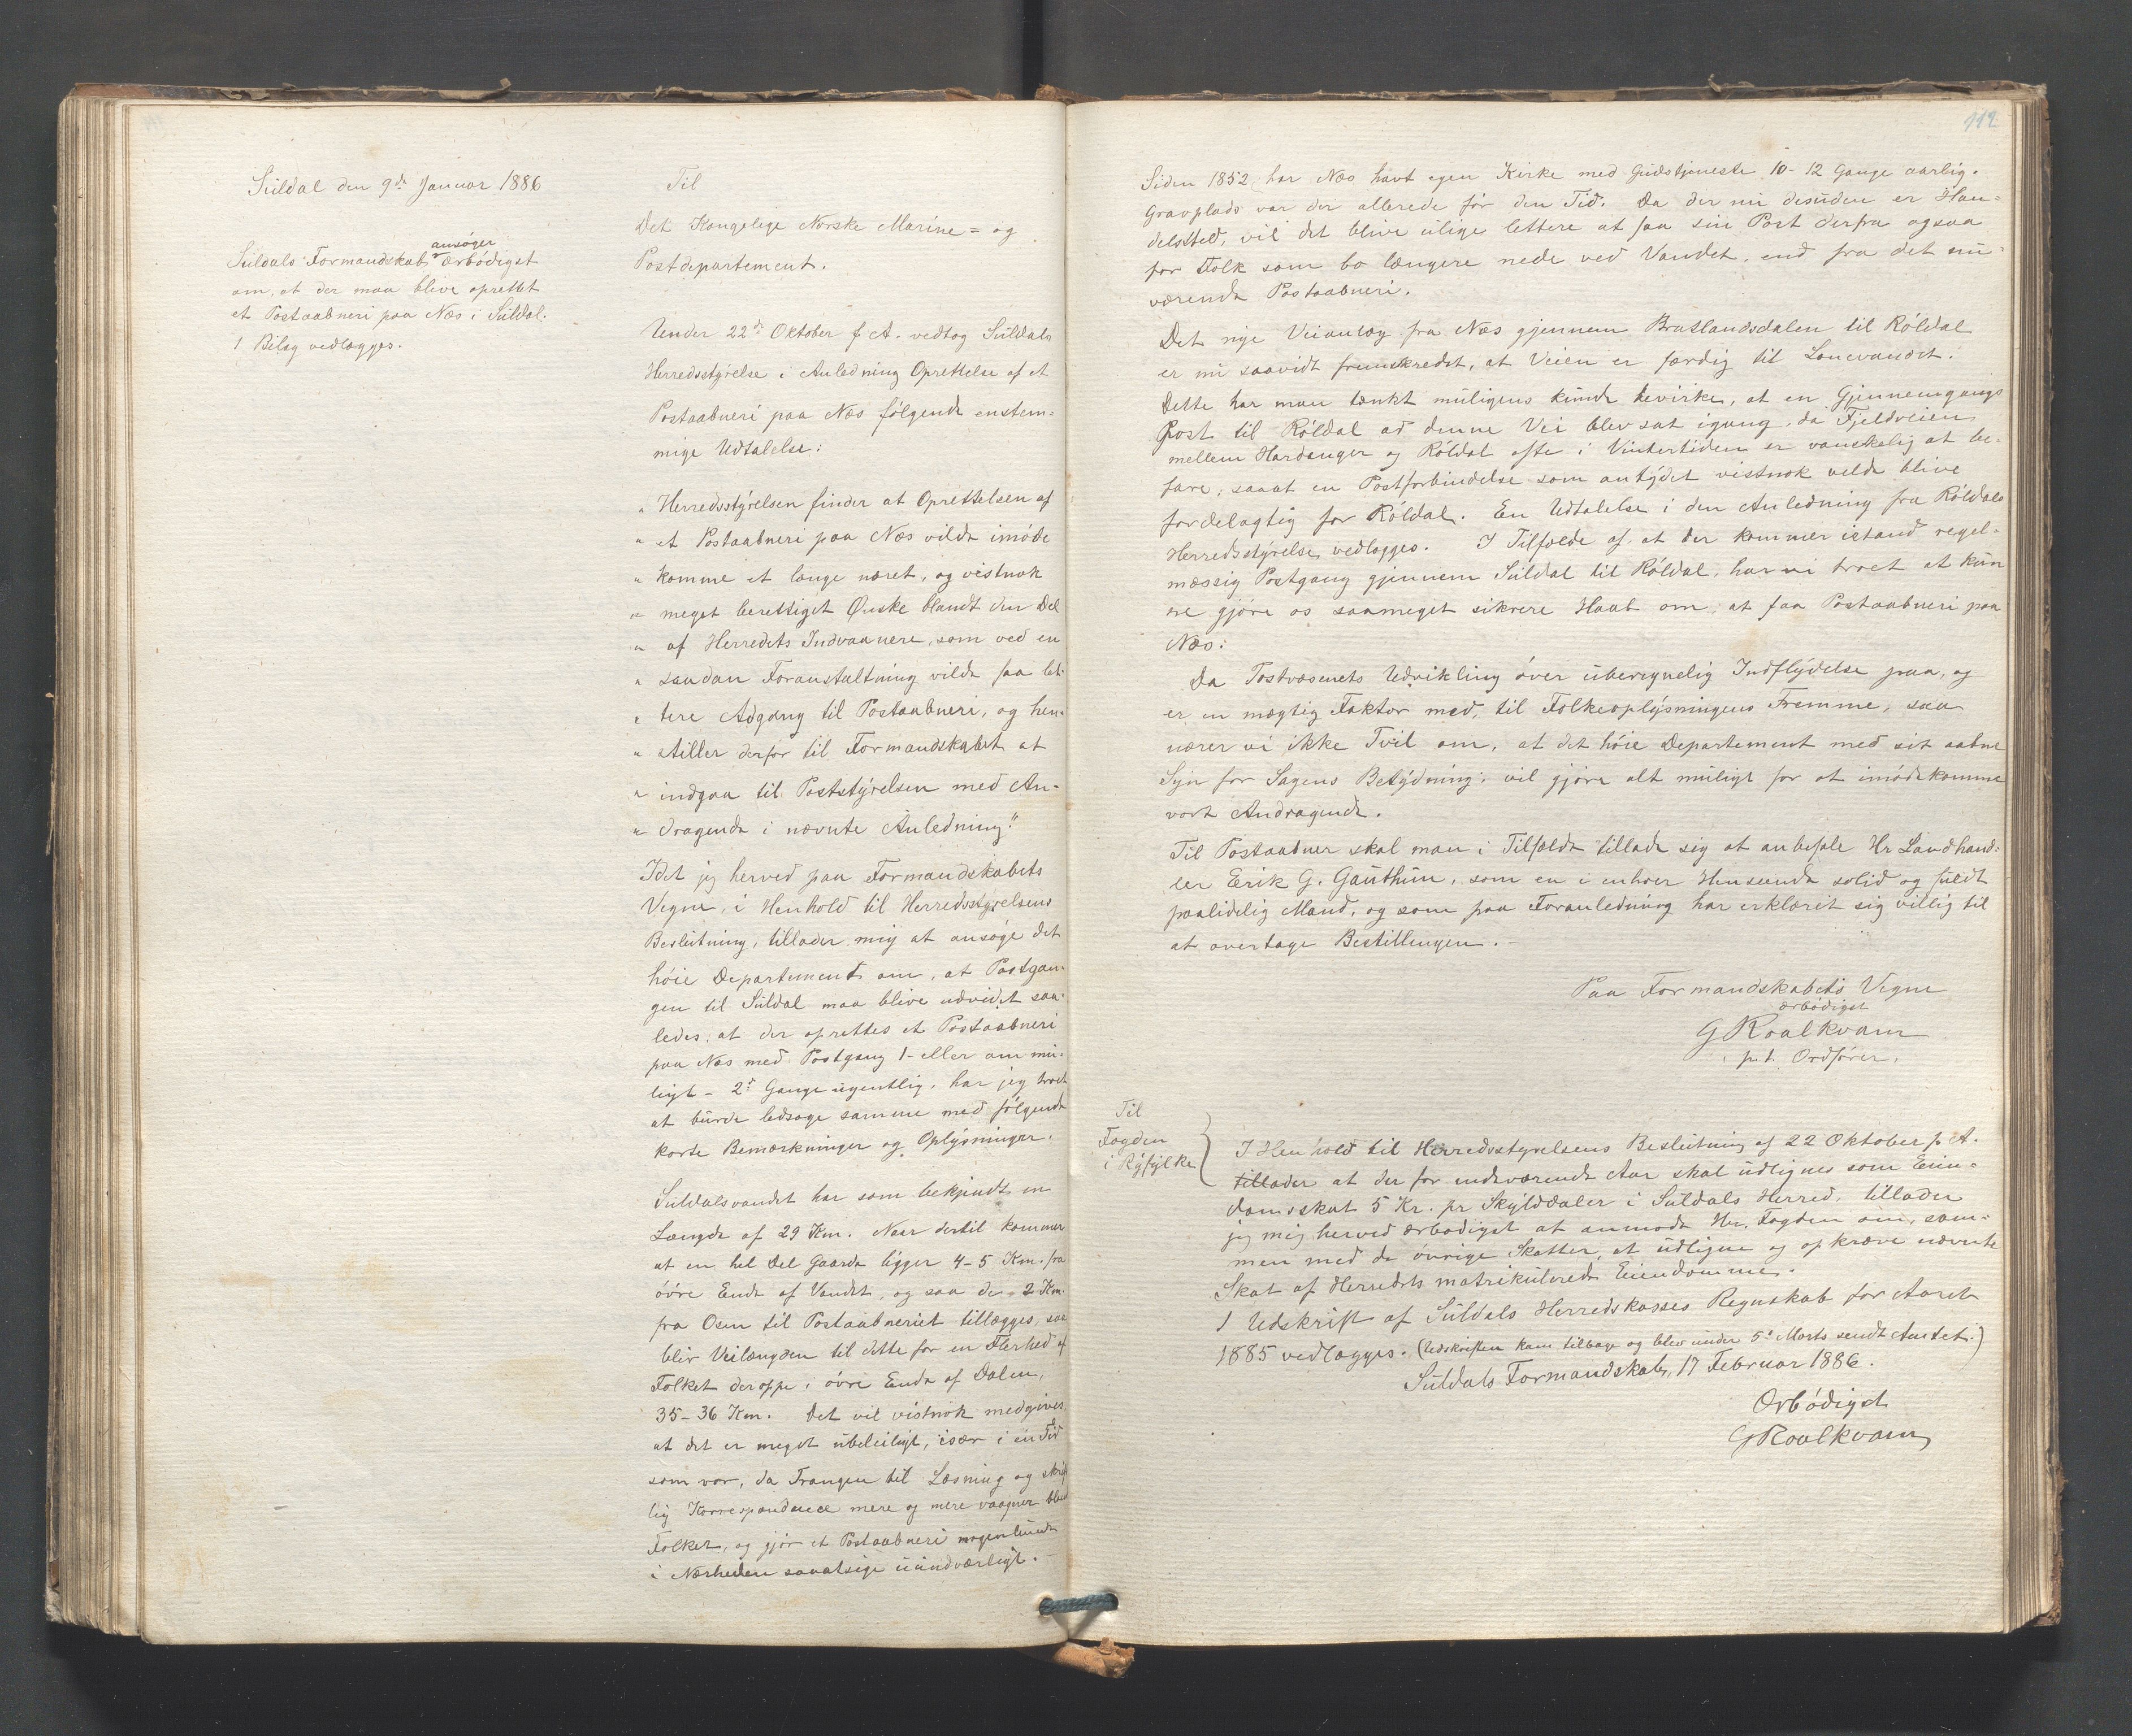 Suldal den 9de Januar 1886
Suldals Formandskab ansøger ærbødigst
om, at der maa blive oprettet
et Postaabneri paa Næs i Suldal.
1 Bilag vedlægges.
Til
Det Kongelige Norske Marine- og
Postdepartement.
Under 22de Oktober f. A. vedtog Suldals
Herredsstyrelse i Anledning Oprettelse af et
Postaabneri paa Næs følgende enstem-
mige Udtalelse:
" Herredsstyrelsen finder at Oprettelsen af
" et Postaabneri paa Næs vilde imøde
" komme et længe næret, og vistnok
" meget berettiget Ønske blandt den Del
" af Herredets Indvaanere, som ved en
" saadan Foranstaltning vilde faa let-
" tere Adgang til Postaabneri, og hen-
" stiller derfor til Formandskabet at
" indgaa til Poststyrelsen med An-
" dragende i nævnte Anledning."
Idet jeg herved paa Formandskabets
Vegne, i Henhold til Herredsstyrelsens
Beslutning, tillader mig at ansøge det
høie Departement om, at Postgan-
gen til Suldal maa blive udvidet saa-
ledes, at der oprettes et Postaabneri
paa Næs med Postgang 1- eller om mu-
ligt - 2de Gange ugentlig, har jeg troet
at burde ledsage samme med følgende
korte Bemærkninger og Oplysninger.
Suldalsvandet har som bekjendt en
Længde af 29 Km. Naar dertil kommer
at en hel Del Gaarde ligger 4-5 Km. fra
øvre Ende af Vandet, og saa de 2 Km.
fra Osen til Postaabneriet tillægges, saa
blir Veilængden til dette for en Flerhed af
Folket deroppe i øvre Ende af Dalen,
35-36 Km. Det vil vistnok medgives,
at det er meget ubeleiligt, især i en Tid
som vor, da Trangen til Læsning og skrift
lig Korrespondance mere og mere vaagner blandt
Folket, og gjør et Postaabneri nogenlunde
i Nærheden saaatsige uundværligt.
112
Siden 1852 har Næs havt egen Kirke med Gudstjeneste 10-12 Gange aarlig.
Gravplads var der allerede før den Tid. Da der nu desuden er Han-
delssted, vil det blive ulige lettere at faa sin Post derfra ogsaa
for Folk som bo længere nede ved Vandet, end fra det nu-
værende Postaabneri.
Det nye Veianlæg fra Næs gjennem Bratlandsdalen til Røldal
er nu saavidt fremskredet, at Veien er færdig til Lonevandet.
Dette har man tænkt muligens kunde bevirke, at en Gjennemgangs
Post til Røldal ad denne Vei blev sat igang, da Fjeldveien
mellem Hardanger og Røldal ofte i Vintertiden er vanskelig at be-
fare, saaat en Postforbindelse som antydet vistnok vilde blive
fordelagtig for Røldal. En Udtalelse i den Anledning fra Røldals
Herredsstyrelse vedlægges. I Tilfælde af at der kommer istand regel-
mæssig Postgang gjennem Suldal til Røldal, har vi troet at kun
ne gjøre os saameget sikrere Haab om, at faa Postaabneri paa
Næs:
Da Postvæsenets Udvikling øver uberegnelig Indflydelse paa, og
er en mægtig Faktor med, til Folkeoplysningens Fremme, saa
nærer vi ikke Tvil om, at det høie Departement med sit aabne
Syn for Sagens Betydning, vil gjøre alt muligt for at imødekomme
vort Andragende.
Til Postaabner skal man i Tilfælde tillade sig at anbefale Hr Landhand-
ler Erik G. Gauthun, som en i enhver Henseende solid og fuldt
paalidelig Mand, og som paa Foranledning har erklæret sig villig til
at overtage Bestillingen. -
Paa Formandskabets Vegne
ærbødigst
G Roalkvam
p. t. Ordfører.
Til
Fogden
i Ryfylke
I Henhold til Herredsstyrelsens Beslutning af 22 Oktober f. A.
tillader at der for indeværende Aar skal udlignes som Eien-
domsskat 5 Kr. pr Skylddaler i Suldals Herred, tillader
jeg mig herved ærbødigst at anmode Hr. Fogden om, sam-
men med de øvrige Skatter, at udligne og opkræve nævnte
Skat af Herredets matrikulerede Eiendomme.
1 Udskrift af Suldals Herredskasses Regnskab for Aaret
1885 vedlægges. (Udskriften kom tilbage og blev under 5te Marts sendt Amtet.)
Suldals Formandskab, 17 Februar 1886.
Ærbødigst
G Roalkvam